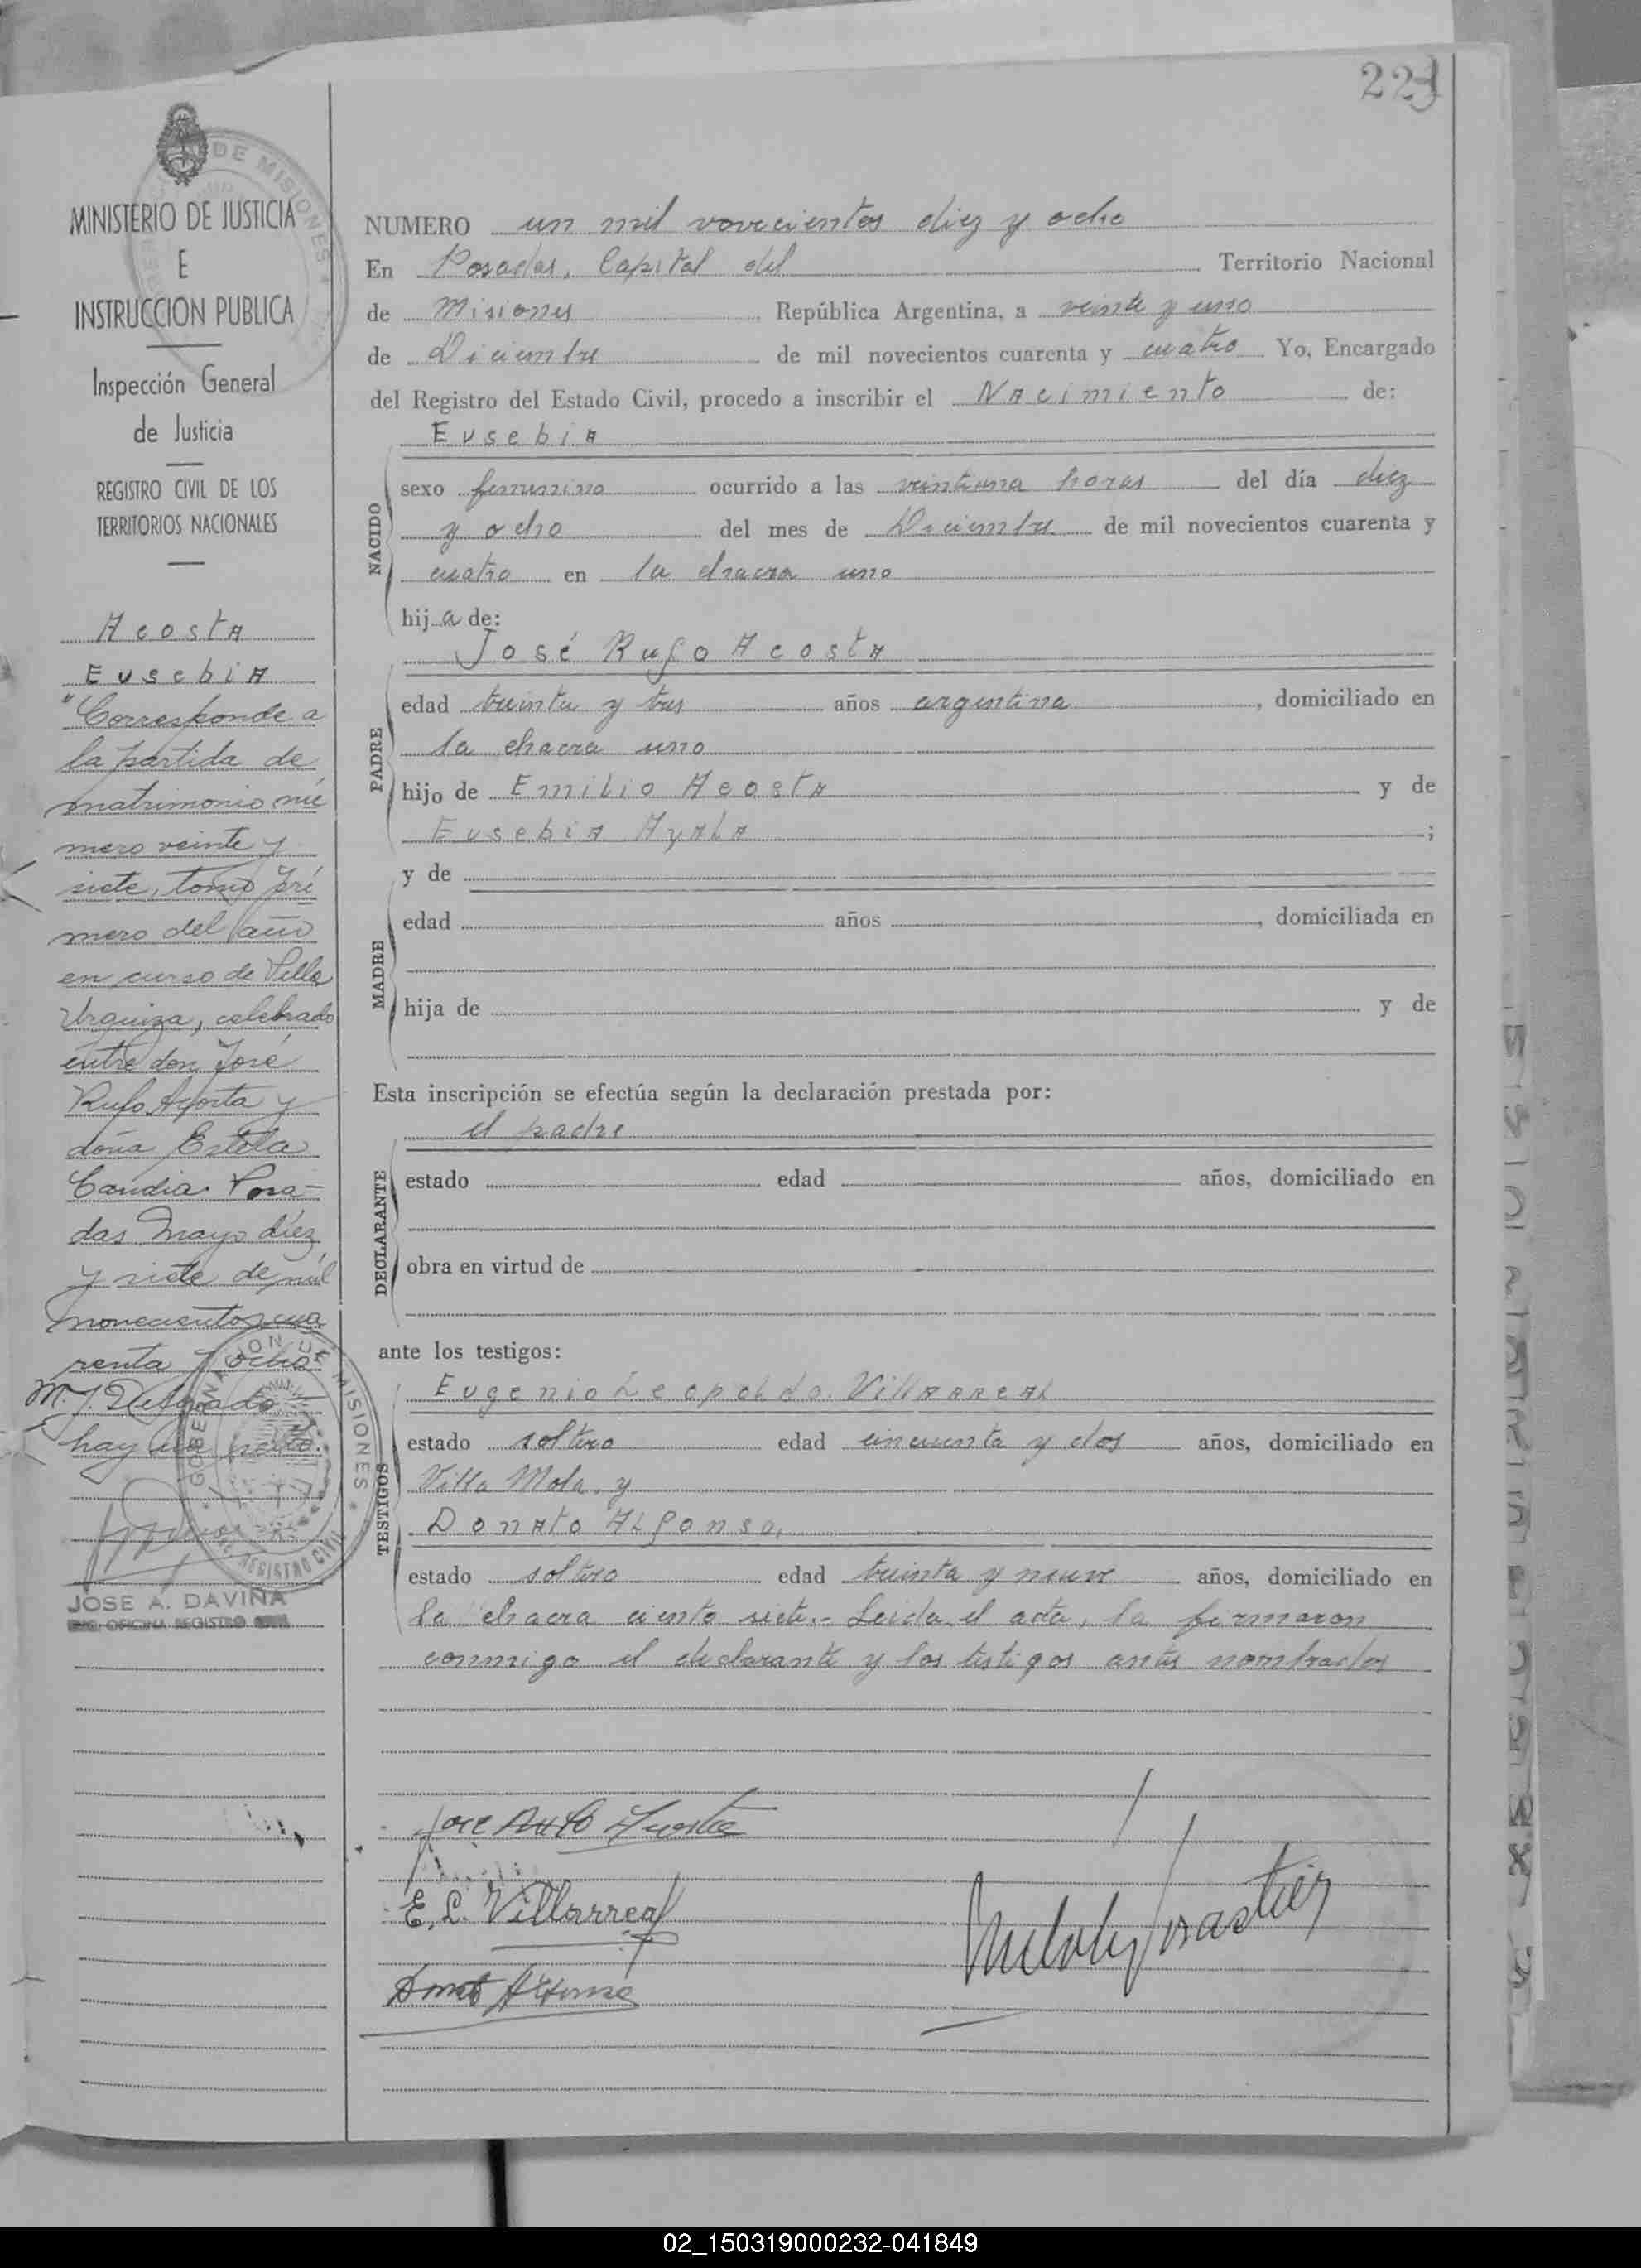 223
MINISTERIO DE JUSTICIA
E
INSTRUCCION PUBLICA
Inspección General
de Justicia
REGISTRO CIVIL DE LOS
TERRITORIOS NACIONALES
Acosta
Eusebia
"Corresponde a
la partida de
matrimonio nú
mero veinte y
siete, tomo pri
mero del año
en curso de Villa
Urquiza, celebrado
entre don José
Rufo Acosta y
doña Estela
Candia. Posa-
das Mayo diez
y siete de mil
novecientos cua
renta y ocho
M. J. Delgado
hay un sello.
GOBERNACION DE MISIONES
REGISTRO CIVIL
JOSE A. DAVIÑA
ENC. OFICINA REGISTRO CIVIL
NUMERO un mil novecientos diez y ocho
En Posadas, Capital del Territorio Nacional
de Misiones República Argentina, a veinte y uno
de Diciembre de mil novecientos cuarenta y cuatro Yo, Encargado
del Registro del Estado Civil, procedo a inscribir el Nacimiento de:
Eusebia
NACIDO
sexo femenino ocurrido a las veintiuna horas del día diez
y ocho del mes de Diciembre de mil novecientos cuarenta y
cuatro en la chacra uno
hija de:
José Rufo Acosta
PADRE
edad treinta y tres años argentina, domiciliado en
la chacra uno
hijo de Emilio Acosta y de
Eusebia Ayala ;
y de
MADRE
edad años , domiciliada en
hija de y de
Esta inscripción se efectúa según la declaración prestada por:
el padre
DECLARANTE
estado edad años, domiciliado en
obra en virtud de
ante los testigos:
Eugenio Leopoldo Villarreal
TESTIGOS
estado soltero edad cincuenta y dos años, domiciliado en
Villa Mola, y
Donato Alfonso,
estado soltero edad treinta y nueve años, domiciliado en
la chacra ciento siete.- Leida el acta, la firmaron
conmigo el declarante y los testigos antes nombrados
Jose Rufo Acosta
E. L. Villarreal
Donato Alfonso
02_150319000232-041849